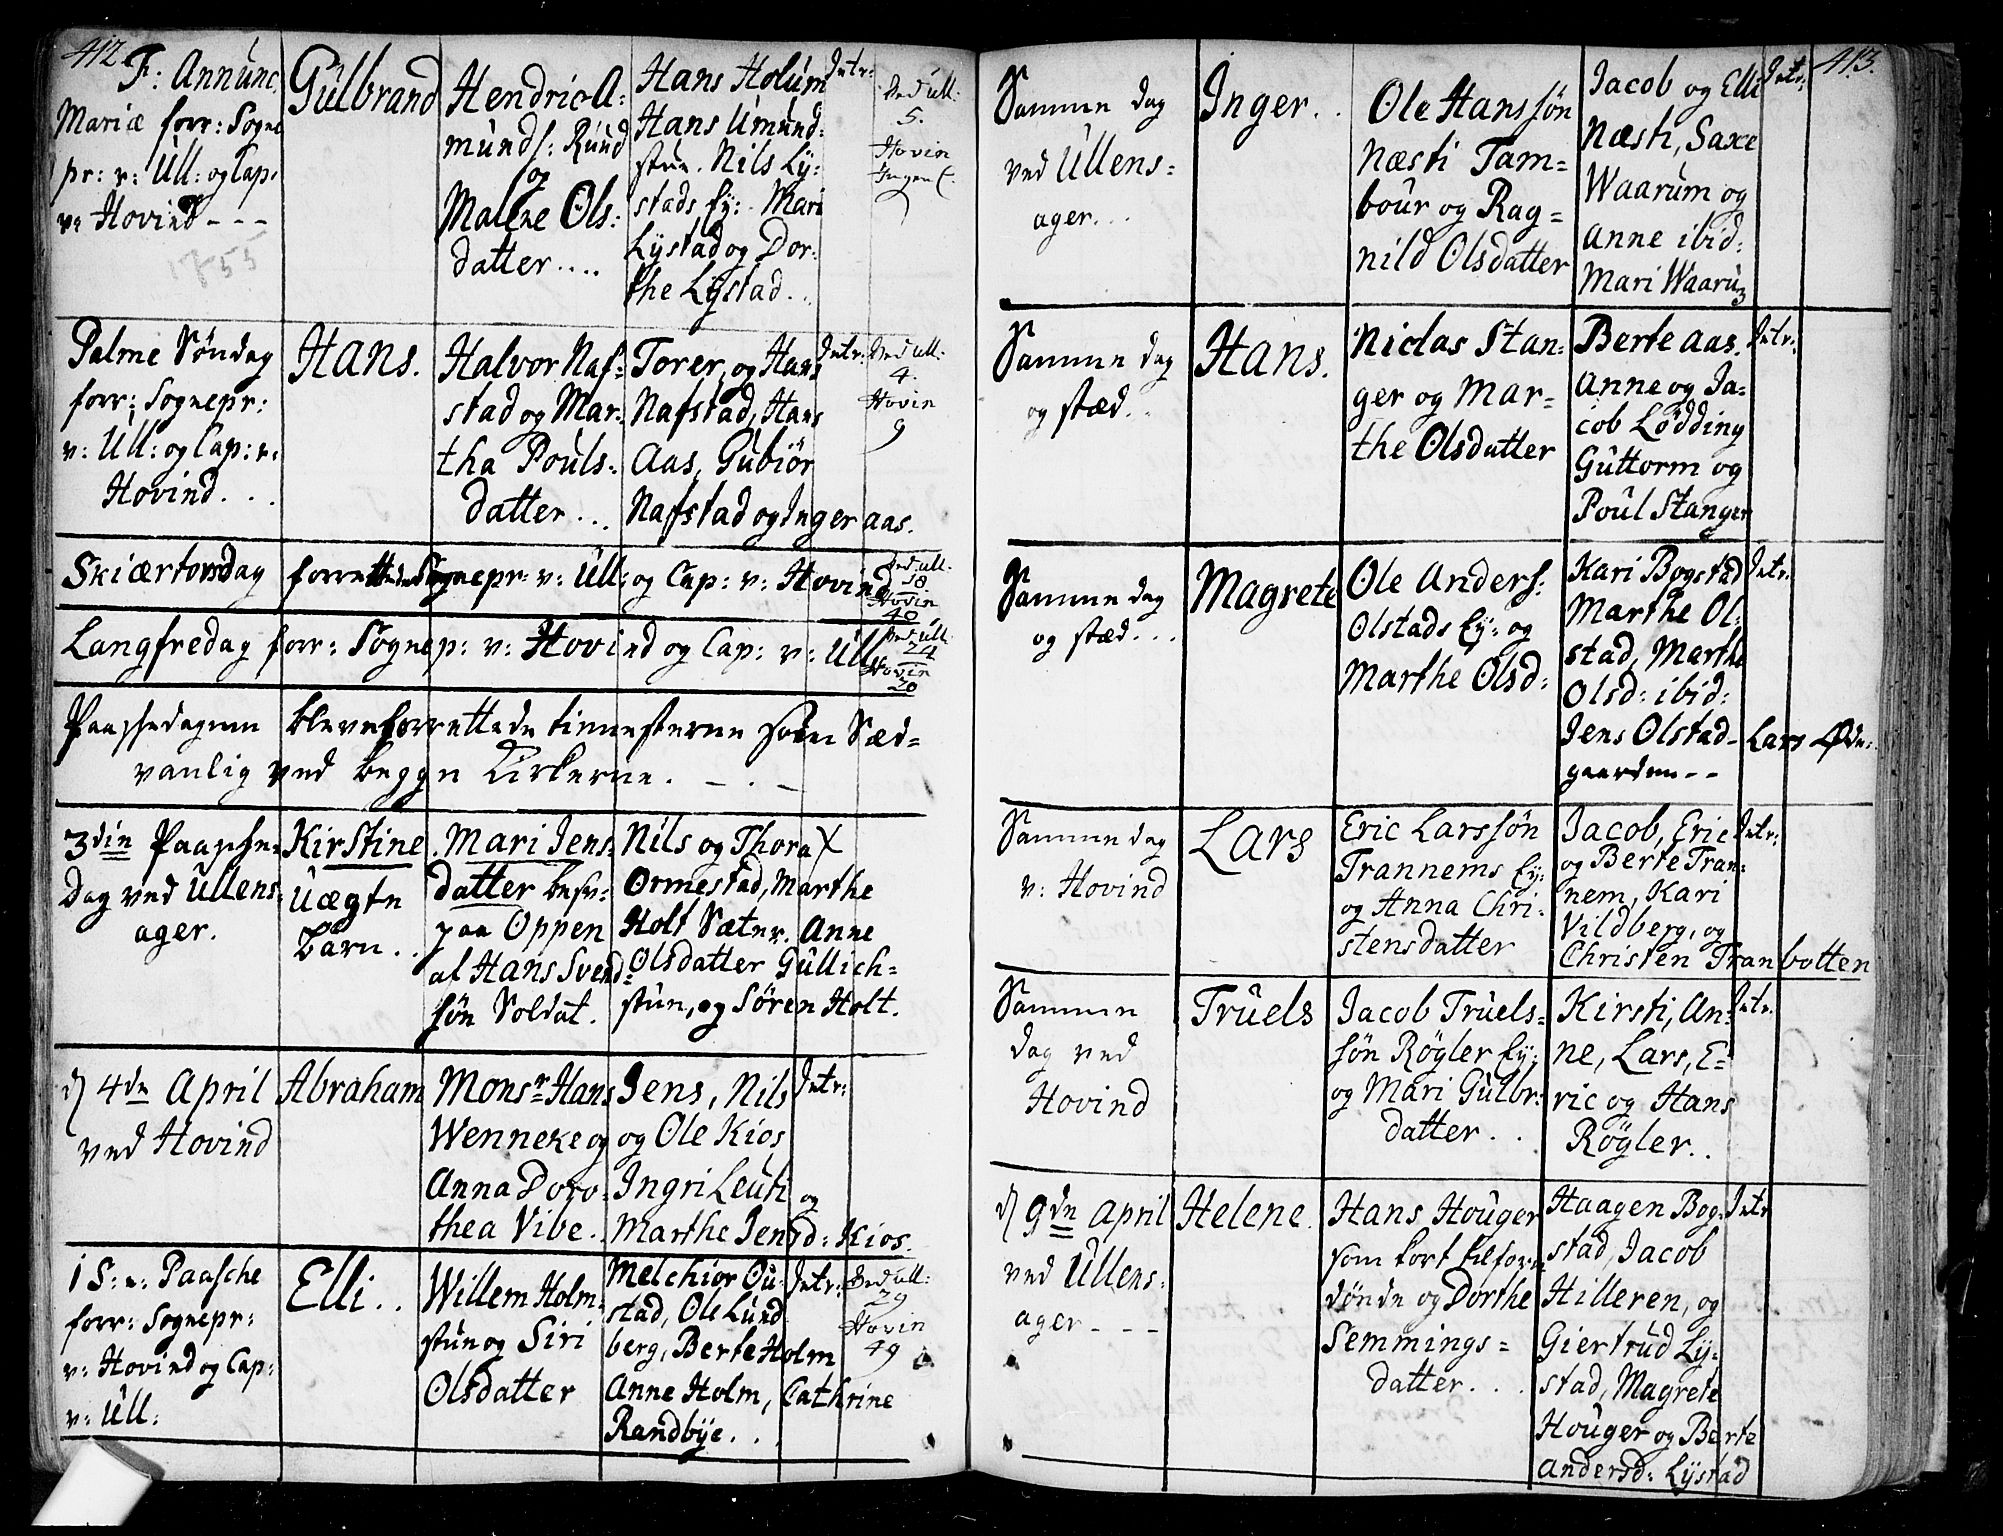 412.
F: Annunc.
Mariæ forr: Sogne
pr: v: Ull: og Cap:
v: Hovind - - -
1755
Gulbrand
Hendric A:
munds: Ruud
og
Malene Ols:
datter....
Hans Holum
Hans Umund:
stun. Nils Ly:
stads Ey: Mari
Lystad og Dor:
the Lystad..
Intr:
Ved Ull:
5.
Hovin
Ingen
Palme Søndag
forr: Sognepr:
v: Ull: og Cap: v:
Hovind...
Hans.
Halvor Naf:
stad og Mar:
tha Pouls:
datter...
Torer, og Hans
Nafstad, Hans
Aas, Gubiør
Nafstad og Inger aas.
Intr:
Ved Ull:
4.
Hovin
9
Skiærtorsdag forrettede Sognepr: v: Ull: og Cap: v: Hovind
Ved Ull:
18
Hovin
40
Langfredag forr: Sognep: v: Hovind og Cap: v: Ull
Ved Ull:
24
Hovin
20
Paaskedagene bleve forrettede tienesterne som Sæd=
vanlig ved begge Kirkerne. - . -
3die Paaske=
Dag ved Ullens:
ager.
Kirstine
Uægte
Barn..
Mari Jens:
datter besv:
paa Oppen
af Hans Svend:
søn Soldat.
Nils og Thora
Ormestad, Marthe
Holt Sæter. Anne
Olsdatter Gullich=
stun, og Søren Holt.
X
d 4de April
ved Hovind
Abraham
Monsr Hans
Wenneke og
Anna Doro:
thea Vibe.
Jens, Nils
og Ole Kios
Ingri Leuti og
Marthe Jensd: Kios.
Intr:
1 S: e: Paasche
forr: Sognepr:
v: Hovind og Cap:
v: Ull:
Elli..
Willem Holm=
stun og Siri
Olsdatter
Melchior Ou:
stad, Ole Lund
berg, Berte Holm
Anne Holm, Cathrine
Randbye...
Intr:
Ved Ull:
29
Hovin
49
413.
Samme dag
ved Ullens=
ager...
Inger..
Ole Hanssøn
Næsti Tam=
bour og Rag=
nild Olsdatter
Jacob og Elli
Næsti, Saxe
Waarum og
Anne ibid:
Mari Waarum
Intr:
Samme dag
og stæd..
Hans.
Niclas Stan=
ger og Mar=
the Olsdatter
Berte Aas.
Anne og Ja=
cob Lødding
Guttorm og
Poul Stanger
Intr:
Samme dag
og stæd...
Magrete
Ole Anders:
Olstads Ey: og
Marthe Olsd:
Kari Bogstad
Marthe Ol:
stad, Marthe
Olsd: ibid:
Jens Olstad - Lars Øde:
gaarden - -
Intr:
Samme dag
v: Hovind
Lars
Eric Larssøn
Trannems Ey:
og Anna Chri:
stensdatter
Jacob, Eric
og Berte Tran=
nem, Kari
Vildberg, og
Christen Tranbotten
Intr:
Samme
dag ved
Hovind
Truels
Jacob Truels=
søn Røgler Ey:
og Mari Gulbr:
datter..
Kirsti, An=
ne, Lars, E=
ric og Hans
Røgler..
Intr:
d 9de April
ved Ullens:
ager - - -
Helene.
Hans Houger
som kort tilforn
døde og Dorthe
Semmings=
datter...
Haagen Bog:
stad, Jacob
Hilleren, og
Giertrud Ly:
stad, Magrete
Houger og Berte
Andersd: Lystad
Intr